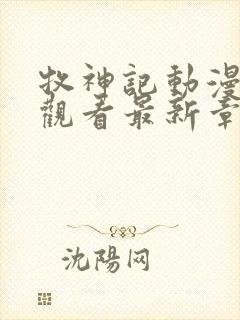 牧神記動漫
觀看最新章
沈陽网